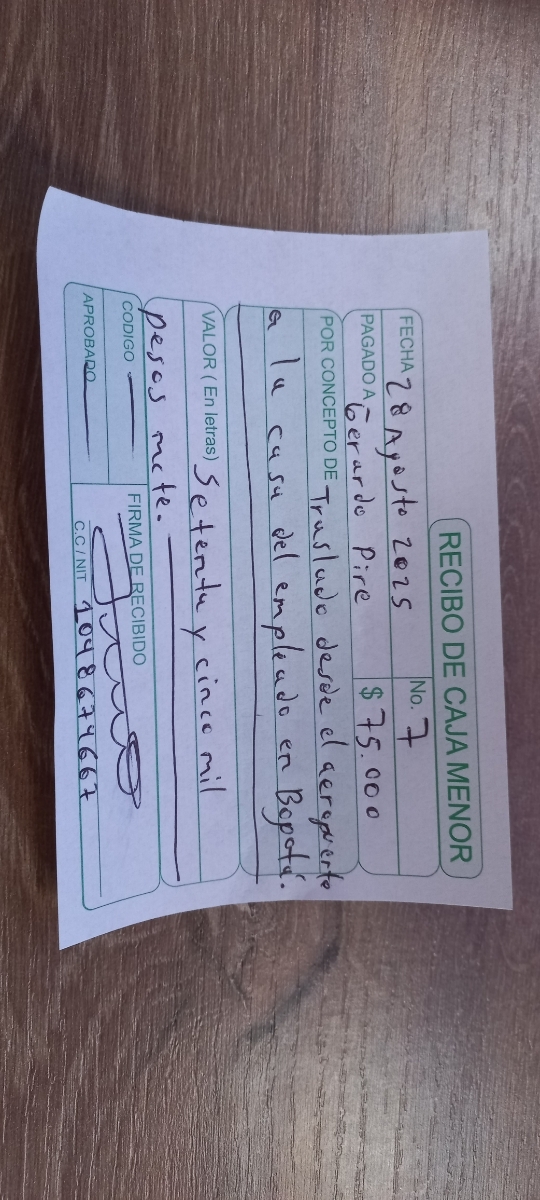 RECIBO DE CAJA MENOR
FECHA 28 Agosto 2025 No. 7
PAGADO A Gerardo Pire $ 75.000
POR CONCEPTO DE Traslado desde el aeropuerto
a la casa del empleado en Bogotá.
VALOR ( En letras) Setenta y cinco mil
pesos mcte.
CODIGO FIRMA DE RECIBIDO
APROBADO C.C / NIT 1048674667